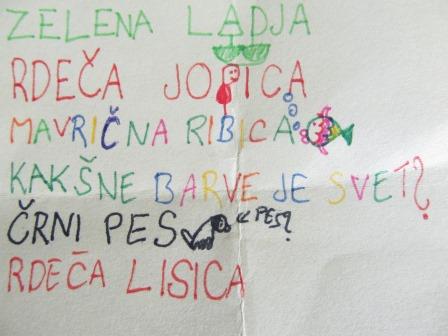 ZELENA LADJA
RDEČA JOPICA
MAVRIČNA RIBICA
KAKŠNE BARVE JE SVET?
ČRNI PES < PES?
RDEČA LISICA